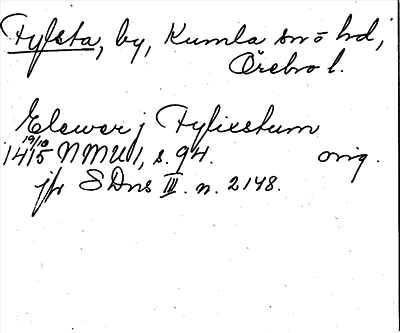 Fylsta, by, Kumla sn o hd,
Örebro l.
Elewer j Fylixstum
19/10
1415 NMU 1, s. 94. orig.
jfr SDns III. n. 2148.